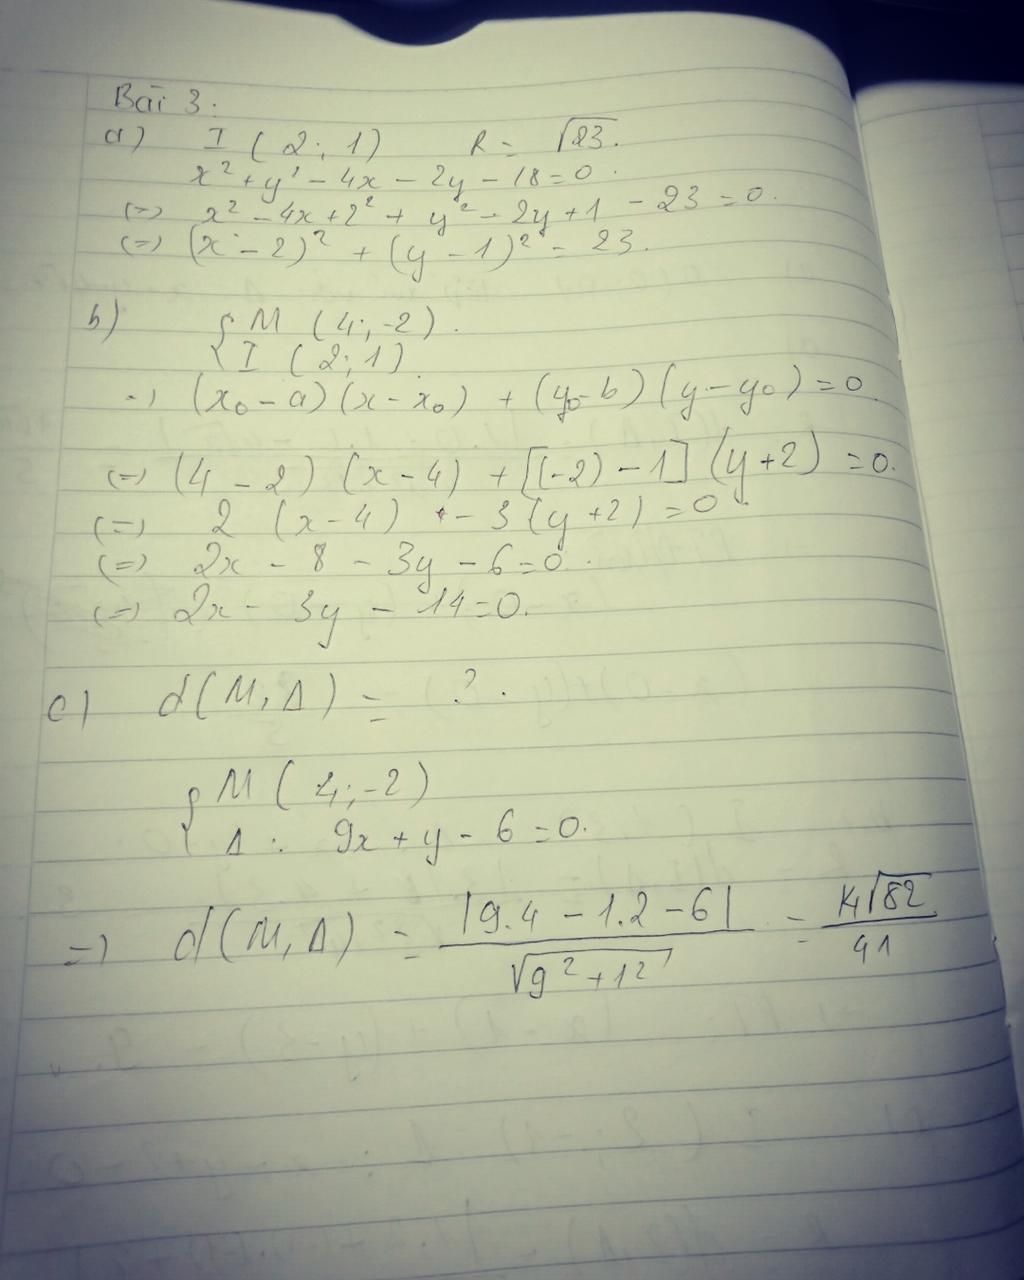 Bài 3:
a) I (2; 1) R = √23.
x² + y² - 4x - 2y - 18 = 0.
(=) x² - 4x + 2² + y² - 2y + 1 - 23 = 0.
(=) (x - 2)² + (y - 1)² = 23.
b) { M (4; -2).
I (2; 1)
=) (x₀ - a) (x - x₀) + (y₀ - b) (y - y₀) = 0.
(=) (4 - 2) (x - 4) + [(-2) - 1] (y + 2) = 0.
(=) 2 (x - 4) + - 3 (y + 2) = 0.
(=) 2x - 8 - 3y - 6 = 0.
(=) 2x - 3y - 14 = 0.
c) d(M, Δ) = ?.
{ M (4; -2)
Δ : 9x + y - 6 = 0.
=) d(M, Δ) = |9.4 - 1.2 - 6| / √9² + 1² = 14√82 / 41